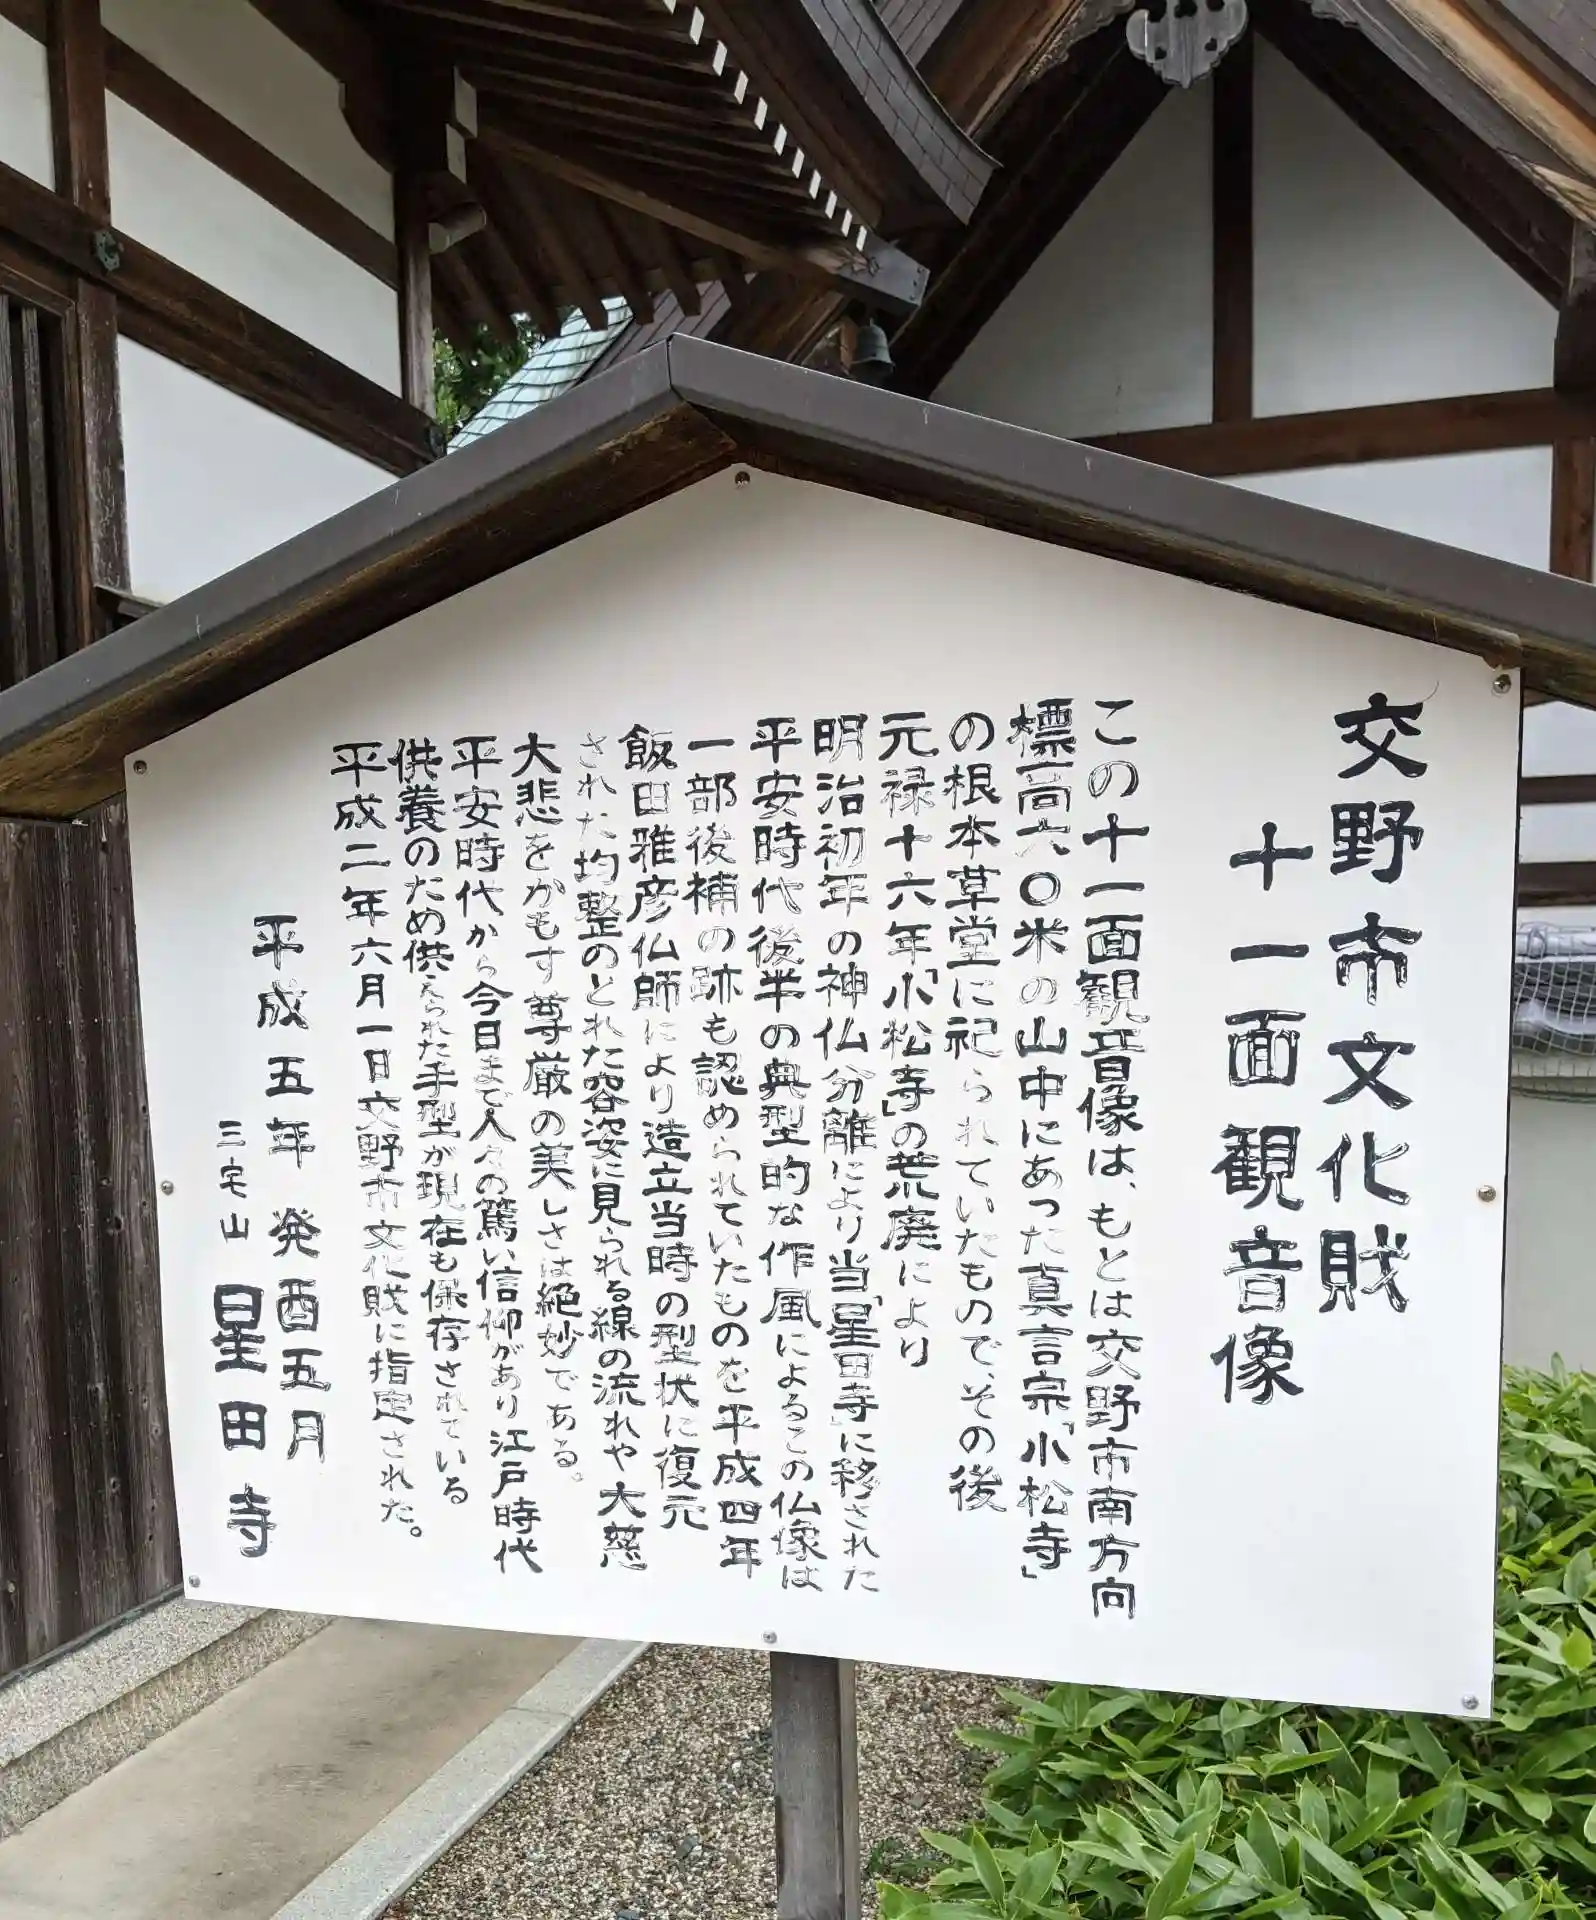 交野市文化財
十一面観音像
この十一面観音像は、もとは交野市南方向
標高六〇米の山中にあった真言宗「小松寺」
の根本草堂に祀られていたもので、その後
元禄十六年「小松寺」の荒廃により
明治初年の神仏分離により当「星田寺」に移された
平安時代後半の典型的な作風によるこの仏像は
一部後補の跡も認められていたものを平成四年
飯田雅彦仏師により造立当時の型状に復元
された均整のとれた容姿に見られる線の流れや大慈
大悲をかもす尊厳の美しさは絶妙である。
平安時代から今日まで人々の篤い信仰があり江戸時代
供養のため供えられた手型が現在も保存されている
平成二年六月一日交野市文化財に指定された。
平成五年発酉五月
三宅山 星田寺